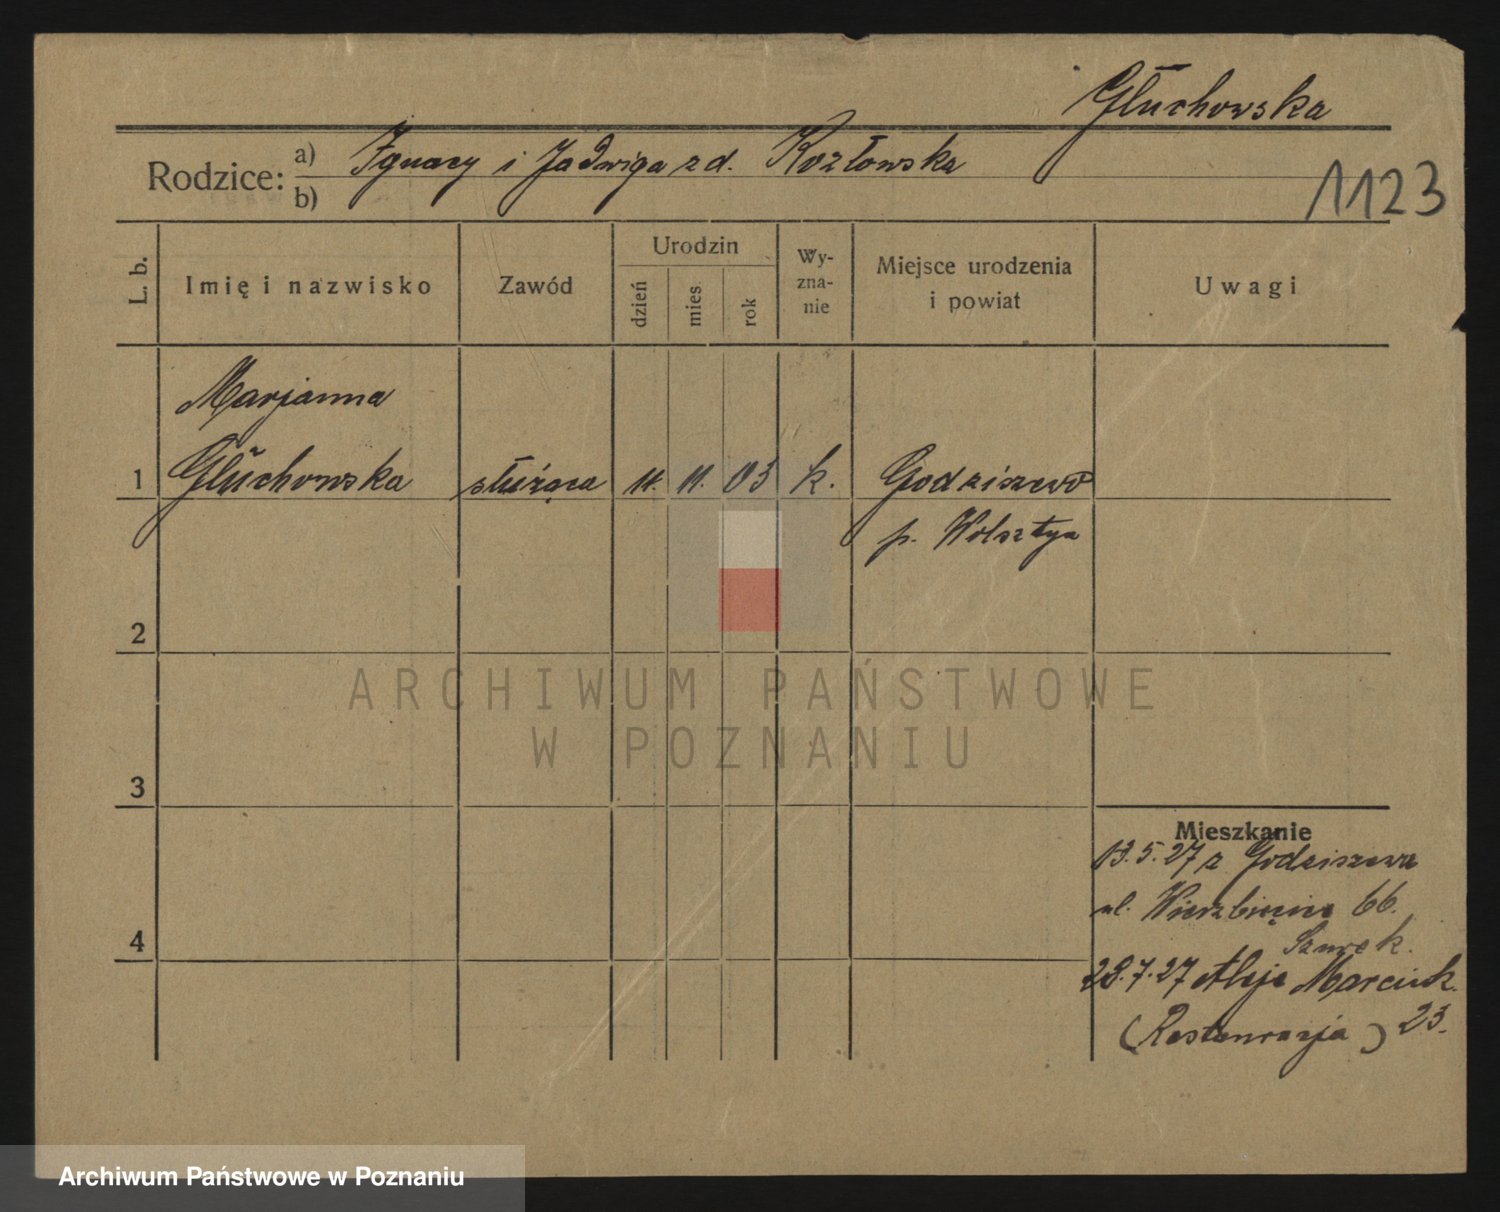 Głuchowska
Rodzice: a) Ignacy i Jadwiga z d. Kozłowska
b)
1123
L. b.
Imię i nazwisko
Zawód
Urodzin
dzień
mies.
rok
Wy-
zna-
nie
Miejsce urodzenia
i powiat
Uwagi
Marjanna
1 Głuchowska służąca 11. 11. 03 k. Godziszewo
p. Wolsztyn
2
ARCHIWUM PAŃSTWOWE
W POZNANIU
3
Mieszkanie
13.5.27 z Godziszewa
ul. Wierzbięcice 66.
4
28.7.27 Aleje Marcink.
(Restauracja) 23.
Archiwum Państwowe w Poznaniu